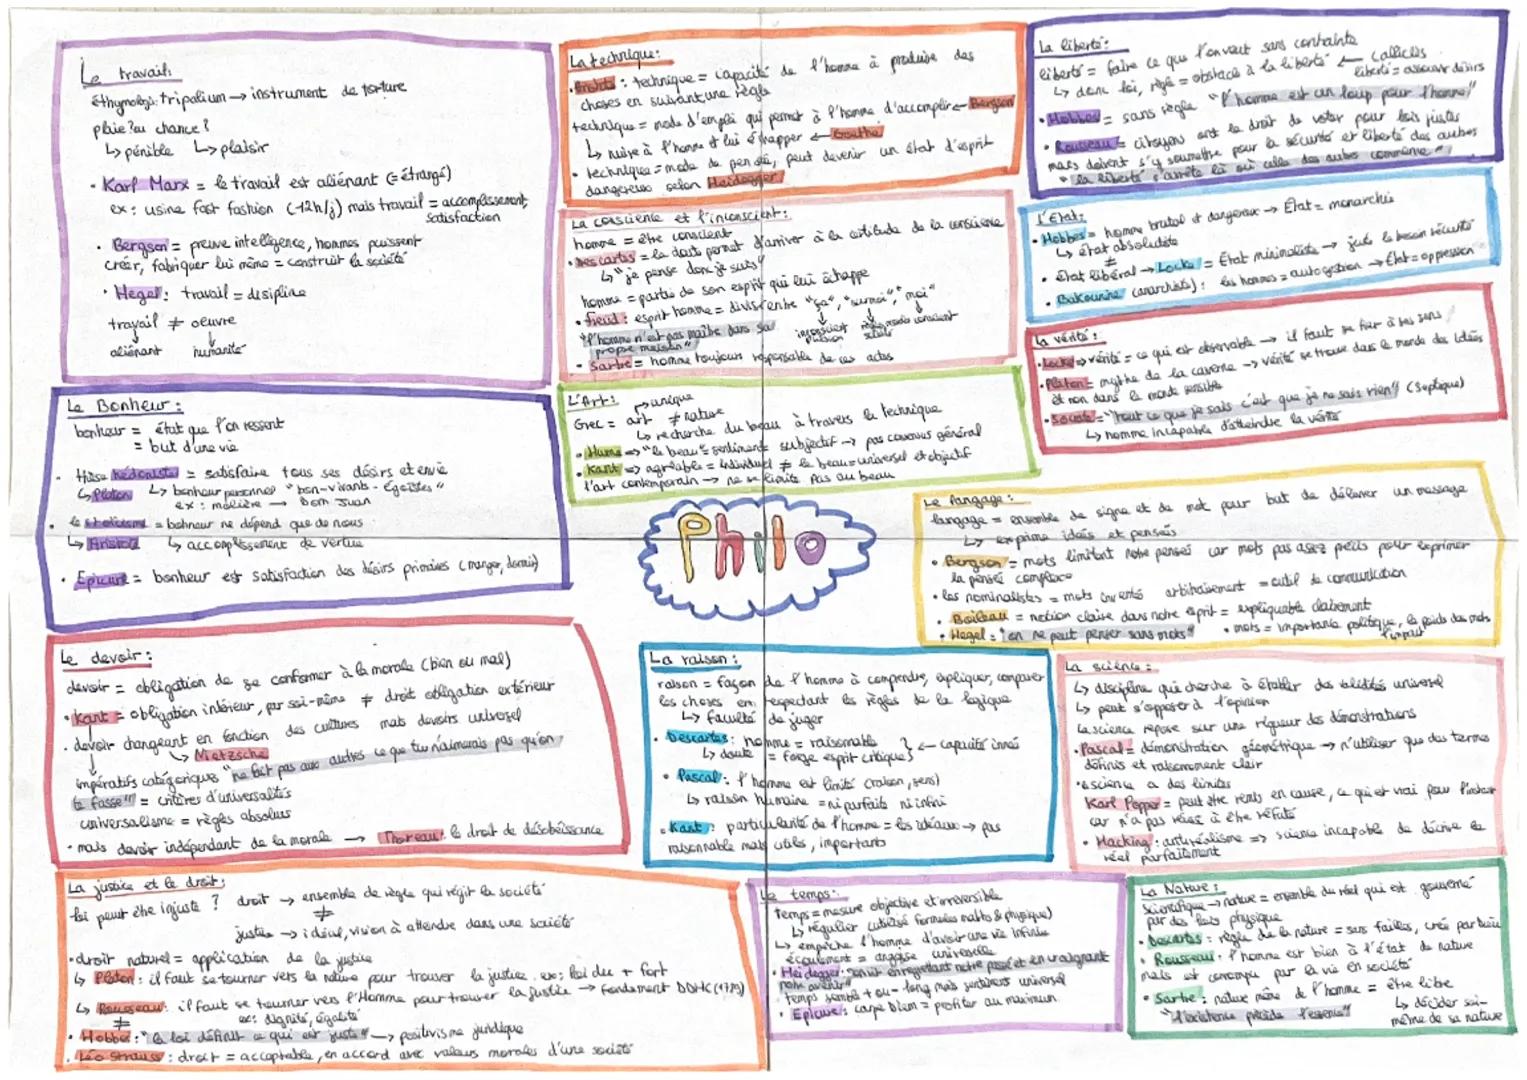 Le travail:
éthymologie: tripalium → instrument de torture
plaie? ou chance?
↳ pénible ↳ plaisir
• Karl Marx = le travail est aliénant (= étrangé)
ex: usine fast fashion (-12h/j) mais travail = accomplissement,
satisfaction
• Bergson = preuve intelligence, hommes puissent
créer, fabriquer lui même = construit la société
• Hegel: travail = disipline
travail ≠ oeuvre
aliénant humanité
Le Bonheur:
bonheur = état que l'on ressent
= but d'une vie
• thèse hédoniste = satisfaire tous ses désirs et envie
↳ Platon ↳ bonheur personnel "bon-vivants - Egoïstes"
ex: molière → Dom Juan
• le stoïcisme = bohneur ne dépend que de nous
↳ Aristote ↳ accomplissement de vertue
• Epicure = bonheur est satisfaction des désirs primaires (manger, dormir)
Le devoir:
devoir = obligation de se conformer à la morale (bien ou mal)
• Kant = obligation intérieur, par soi-même ≠ droit obligation extérieur
• devoir changeant en fonction des cultures mais devoirs universel
↳ Nietzsche
impératifs catégoriques "ne fait pas aux autres ce que tu n'aimerais pas qu'on
te fasse" = critères d'universalités
universalisme = règles absolus
• mais devoir indépendant de la morale → Thoreau: le droit de désobéissance
La justice et le droit:
loi peut être injuste? droit → ensemble de règle qui régit la société
≠
justice → idéal, vision à attendre dans une société
• droit naturel = application de la justice
↳ Platon: il faut se tourner vers la nature pour trouver la justice. ex: loi du + fort
↳ Rousseau: il faut se tourner vers l'Homme pour trouver la justice → fondement DDHC (1789)
≠ ex: dignité, égalité
• Hobbes: "la loi définit ce qui est juste" → positivisme juridique
• Léo Strauss: droit = acceptable, en accord avec valeurs morales d'une société
La technique:
technique = capacité de l'homme à produire des
choses en suivant une règle
technique = mode d'emploi qui permet à l'homme d'accomplir ← Bergson
↳ nuire à l'homme et lui échapper ← Goethe
• technique = mode de pensée, peut devenir un état d'esprit
dangereux selon Heidegger
La consciene et l'inconscient:
homme = être conscient
• Descartes = le doute permet d'arriver à la certitude de la conscience
↳ "je pense donc je suis"
homme = partie de son esprit qui lui échappe
• Freud: esprit homme = divisé entre "ça", "surmoi", "moi"
"l'homme n'est pas maître dans sa
propre maison"
conscient
• Sartre = homme toujours responsable de ces actes
L'Art:
→ unique
Grec = art ≠ nature
↳ recherche du beau à travers la technique
• Hume => "le beau" = sentiment subjectif → pas général
• Kant => agréable = individuel ≠ le beau = universel et objectif
l'art contemporain → ne se limite pas au beau
Philo
La raison:
raison = façon de l'homme à comprendre, expliquer, comparer
les choses en respectant les règles de la logique
↳ faculté de juger
• Descartes: homme = raisonnable
↳ doute = forge esprit critique } ← capacité inné
• Pascal: l'homme est limité (raison, sens)
↳ raison humaine = ni parfaite ni infini
• Kant: particularité de l'homme = les idéaux → pas
raisonnable mais utiles, importants
Le temps:
Temps = mesure objective et irréversible
↳ régulier (utilisé formules maths & physique)
↳ empêche l'homme d'avoir une vie infinie
écoulement = angoisse universelle
• Heidegger: on vit en regrettant notre passé et en craignant
notre avenir"
temps semble + ou - long mais sentiment universel
• Epicure: carpe diem = profiter au maximum
La liberté:
liberté = faire ce que l'on veut sans contrainte
↳ donc loi, règle = obstacle à la liberté ← Calliclès
liberté = assouvir désirs
• Hobbes = sans règle "l'homme est un loup pour l'homme"
• Rousseau = citoyen ont le droit de voter pour lois justes
mais doivent s'y soumettre pour la sécurité et liberté des autres
"la liberté s'arrête là où celle des autres commence"
L'Etat:
• Hobbes = homme brutal et dangereux → Etat = monarchie
↳ état absolutiste
≠
• état libéral → Locke = État minimaliste → juste le besoin sécurité
• Bakounine (anarchiste): les hommes = autogestion → État = oppression
La vérité:
• Locke => vérité = ce qui est observable → il faut se fier à ses sens
• Platon = mythe de la caverne → vérité se trouve dans le monde des idées
et non dans le monde sensible
• Socrate = "tout ce que je sais c'est que je ne sais rien" (septique)
↳ homme incapable d'atteindre la vérité
Le langage:
langage = ensemble de signe et de mot pour but de délivrer un message
↳ exprime idées et pensées
• Bergson = mots limitent notre pensée car mots pas assez précis pour exprimer
la pensée complexe
• les nominalistes = mots inventé arbitrairement = outil de communication
• Boileau = notion claire dans notre esprit = expliquable clairement
• Hegel: "on ne peut penser sans mots" • mots = importance politique, le poids des mots
La science:
↳ discipline qui cherche à établir des validités universel
↳ peut s'opposer à l'opinion
La science repose sur une rigueur des démonstrations
• Pascal = démonstration géométrique → n'utiliser que des termes
définis et raisonnement clair
• science a des limites
Karl Popper = peut être remis en cause, ce qui est vrai pour l'instant
car n'a pas réussi à être réfuté
• Hacking: antiréalisme => science incapable de décrire le
réel parfaitement
La Nature:
Scientifique → nature = ensemble du réel qui est gouverné
par des lois physique
• Descartes: règle de la nature = sans failles, créé par Dieu
• Rousseau: l'homme est bien à l'état de nature
mais est corrompu par la vie en société
• Sartre: nature même de l'homme = être libre
"l'existence précède l'essence" ↳ décider soi-
même de sa nature